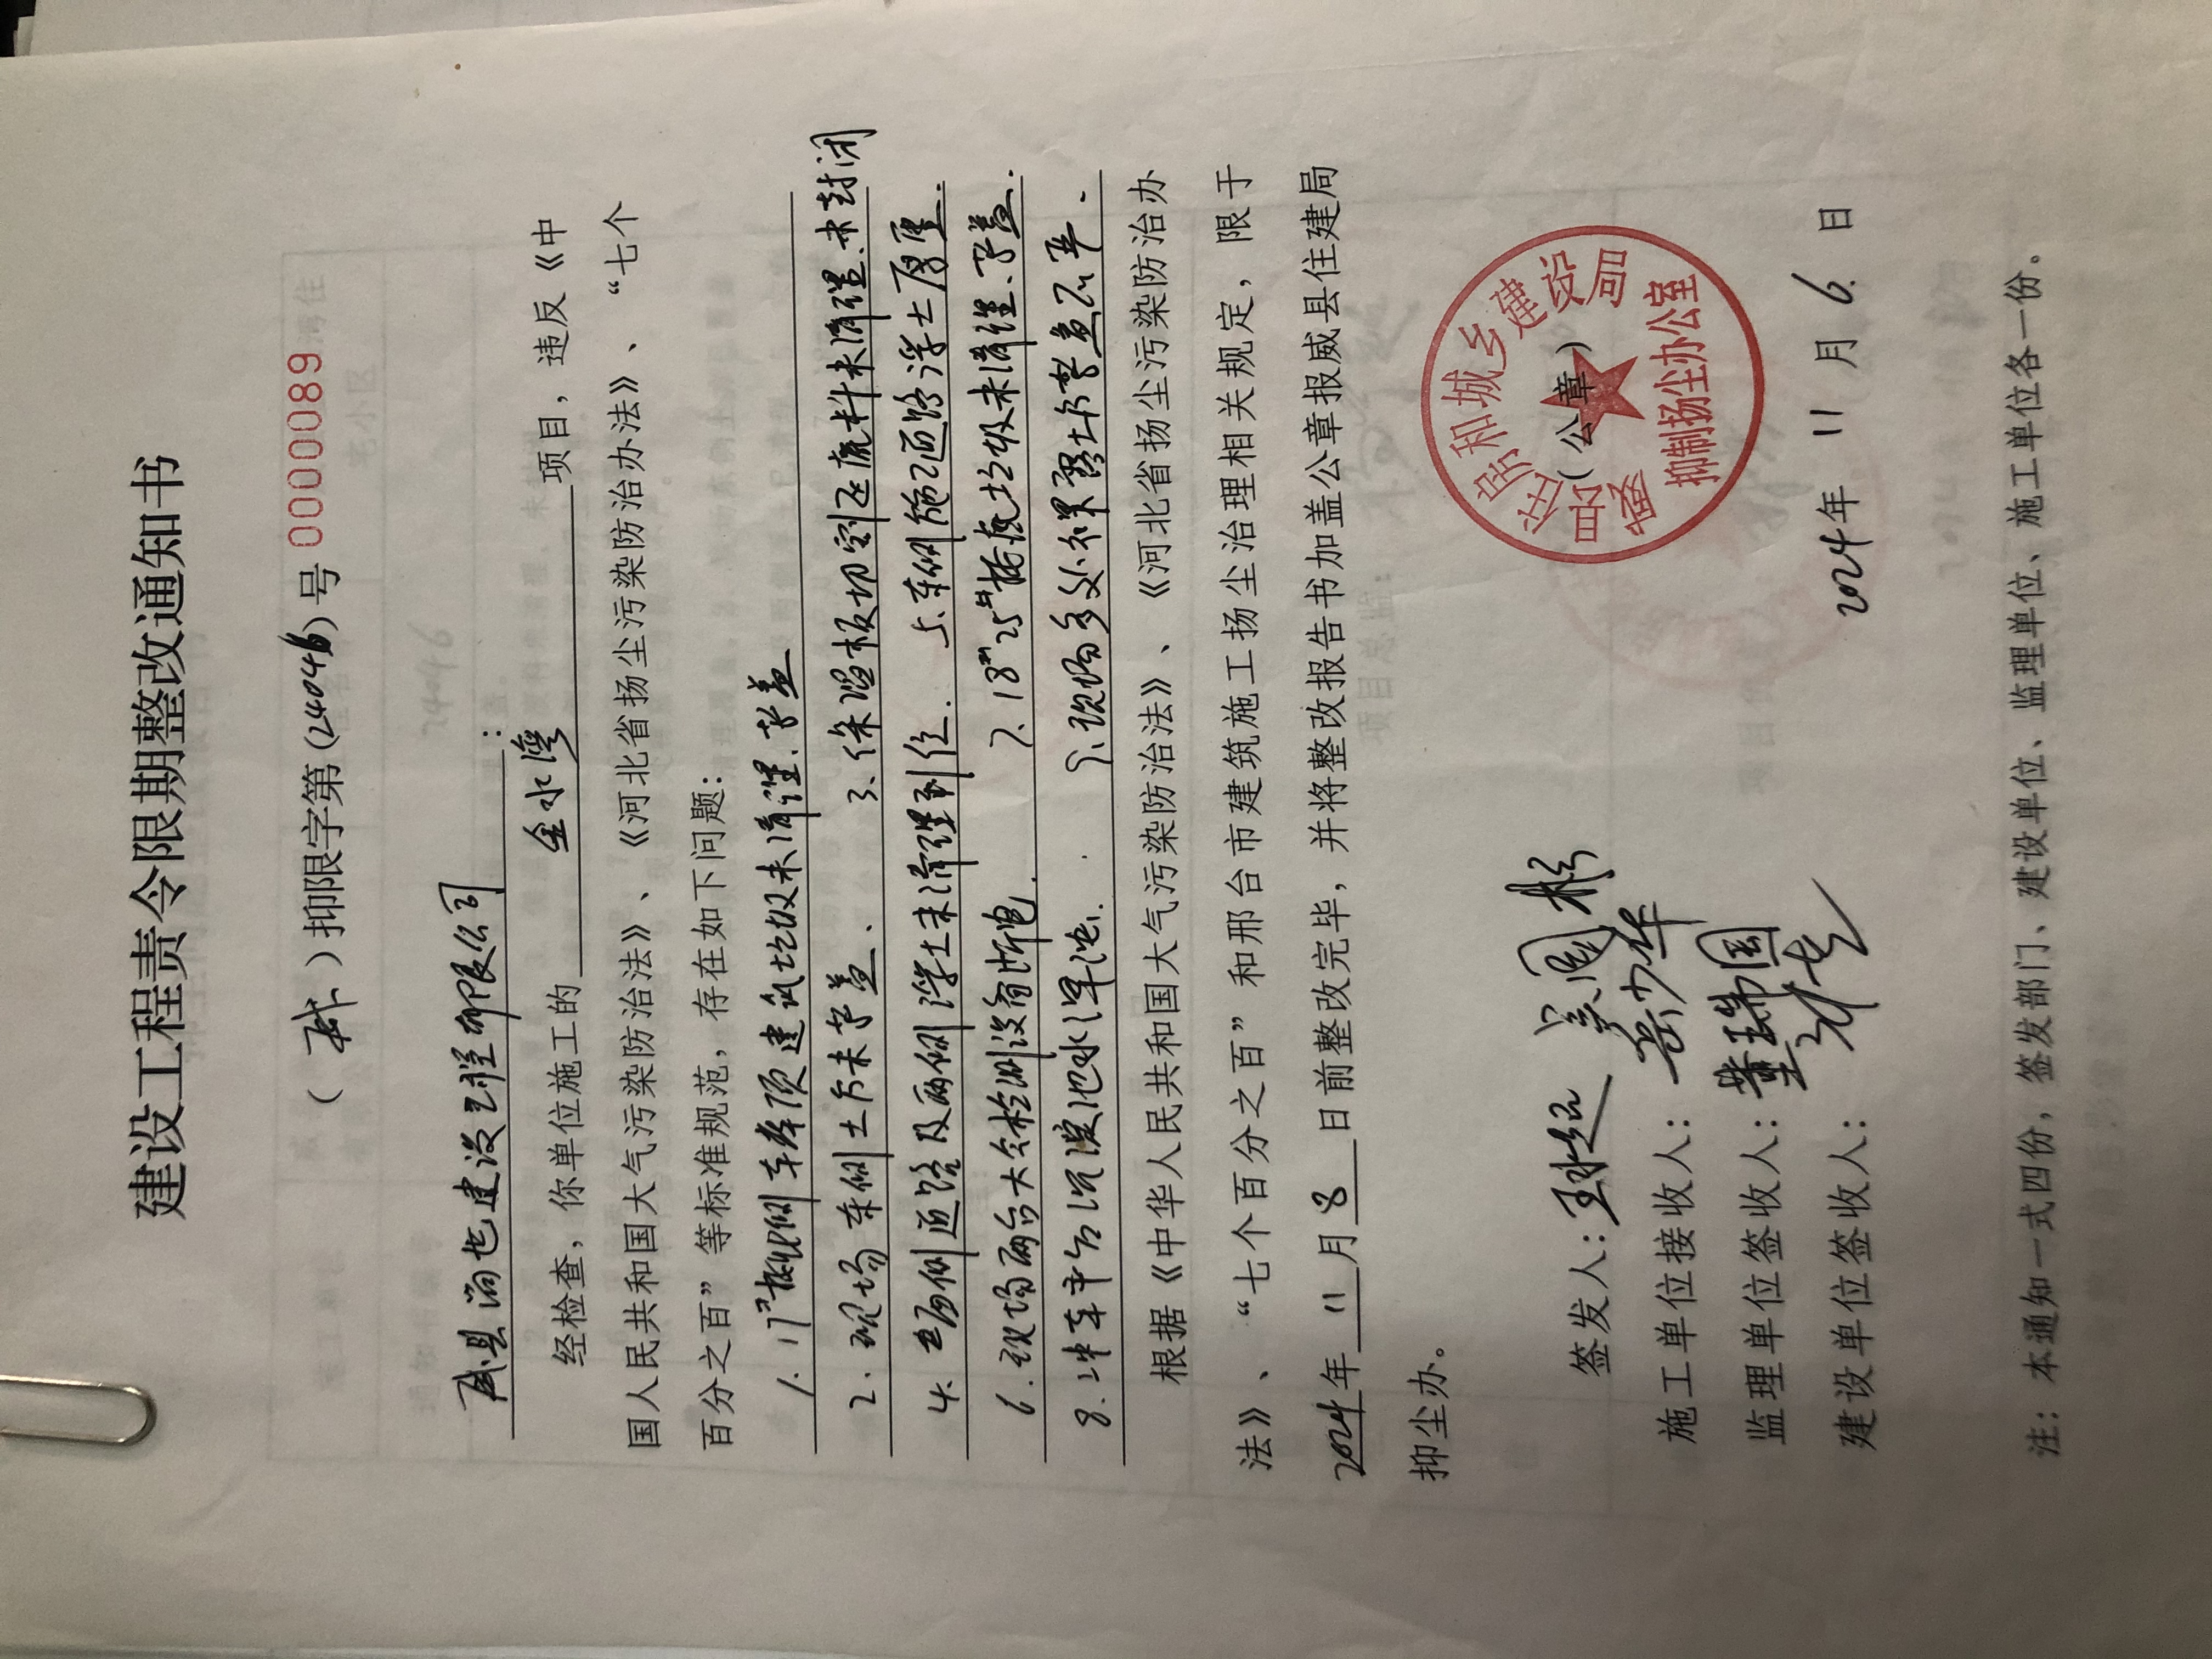 建设工程责令限期整改通知书
（威）抑限字第（24046）号 0000089
威县润也建设工程有限公司：
经检查，你单位施工的 金水湾 项目，违反《中
国人民共和国大气污染防治法》、《河北省扬尘污染防治办法》、“七个
百分之百”等标准规范，存在如下问题：
1. 17#楼北侧车库顶建筑垃圾未清理.苫盖
2. 现场东侧土方未苫盖、 3、保温板切割区废料未清理.未封闭
4. 西侧道路及两侧浮土未清理到位. 5、东侧施工道路浮土厚重.
6. 现场两台大气检测设备断电. 7. 18# 25#楼施垃圾未清理、苫盖.
8. 冲车平台沉淀池水浑浊. 9. 现场多处裸露土方苫盖不严.
根据《中华人民共和国大气污染防治法》、《河北省扬尘污染防治办
法》、“七个百分之百”和邢台市建筑施工扬尘治理相关规定，限于
2024年 11 月 8 日前整改完毕，并将整改报告书加盖公章报威县住建局
抑尘办。
签发人：
施工单位接收人：
监理单位签收人：董瑞国
建设单位签收人：
威县住房和城乡建设局
（公章）
抑制扬尘办公室
2024年 11 月 6 日
注：本通知一式四份，签发部门、建设单位、监理单位、施工单位各一份。